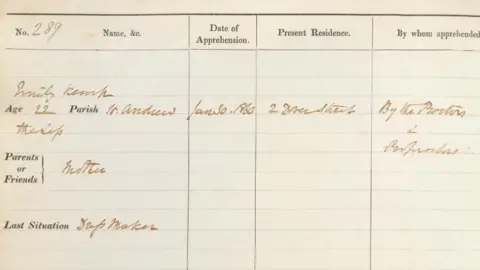 No. 289 Name, &c. Date of Apprehension. Present Residence. By whom apprehended
Emily Kemp
Age 22 Parish St. Andrew Jan 6. 1860 2 Dover Street By the Proctors
the less &
Proproctors
Parents or Friends } Mother
Last Situation Dress Maker